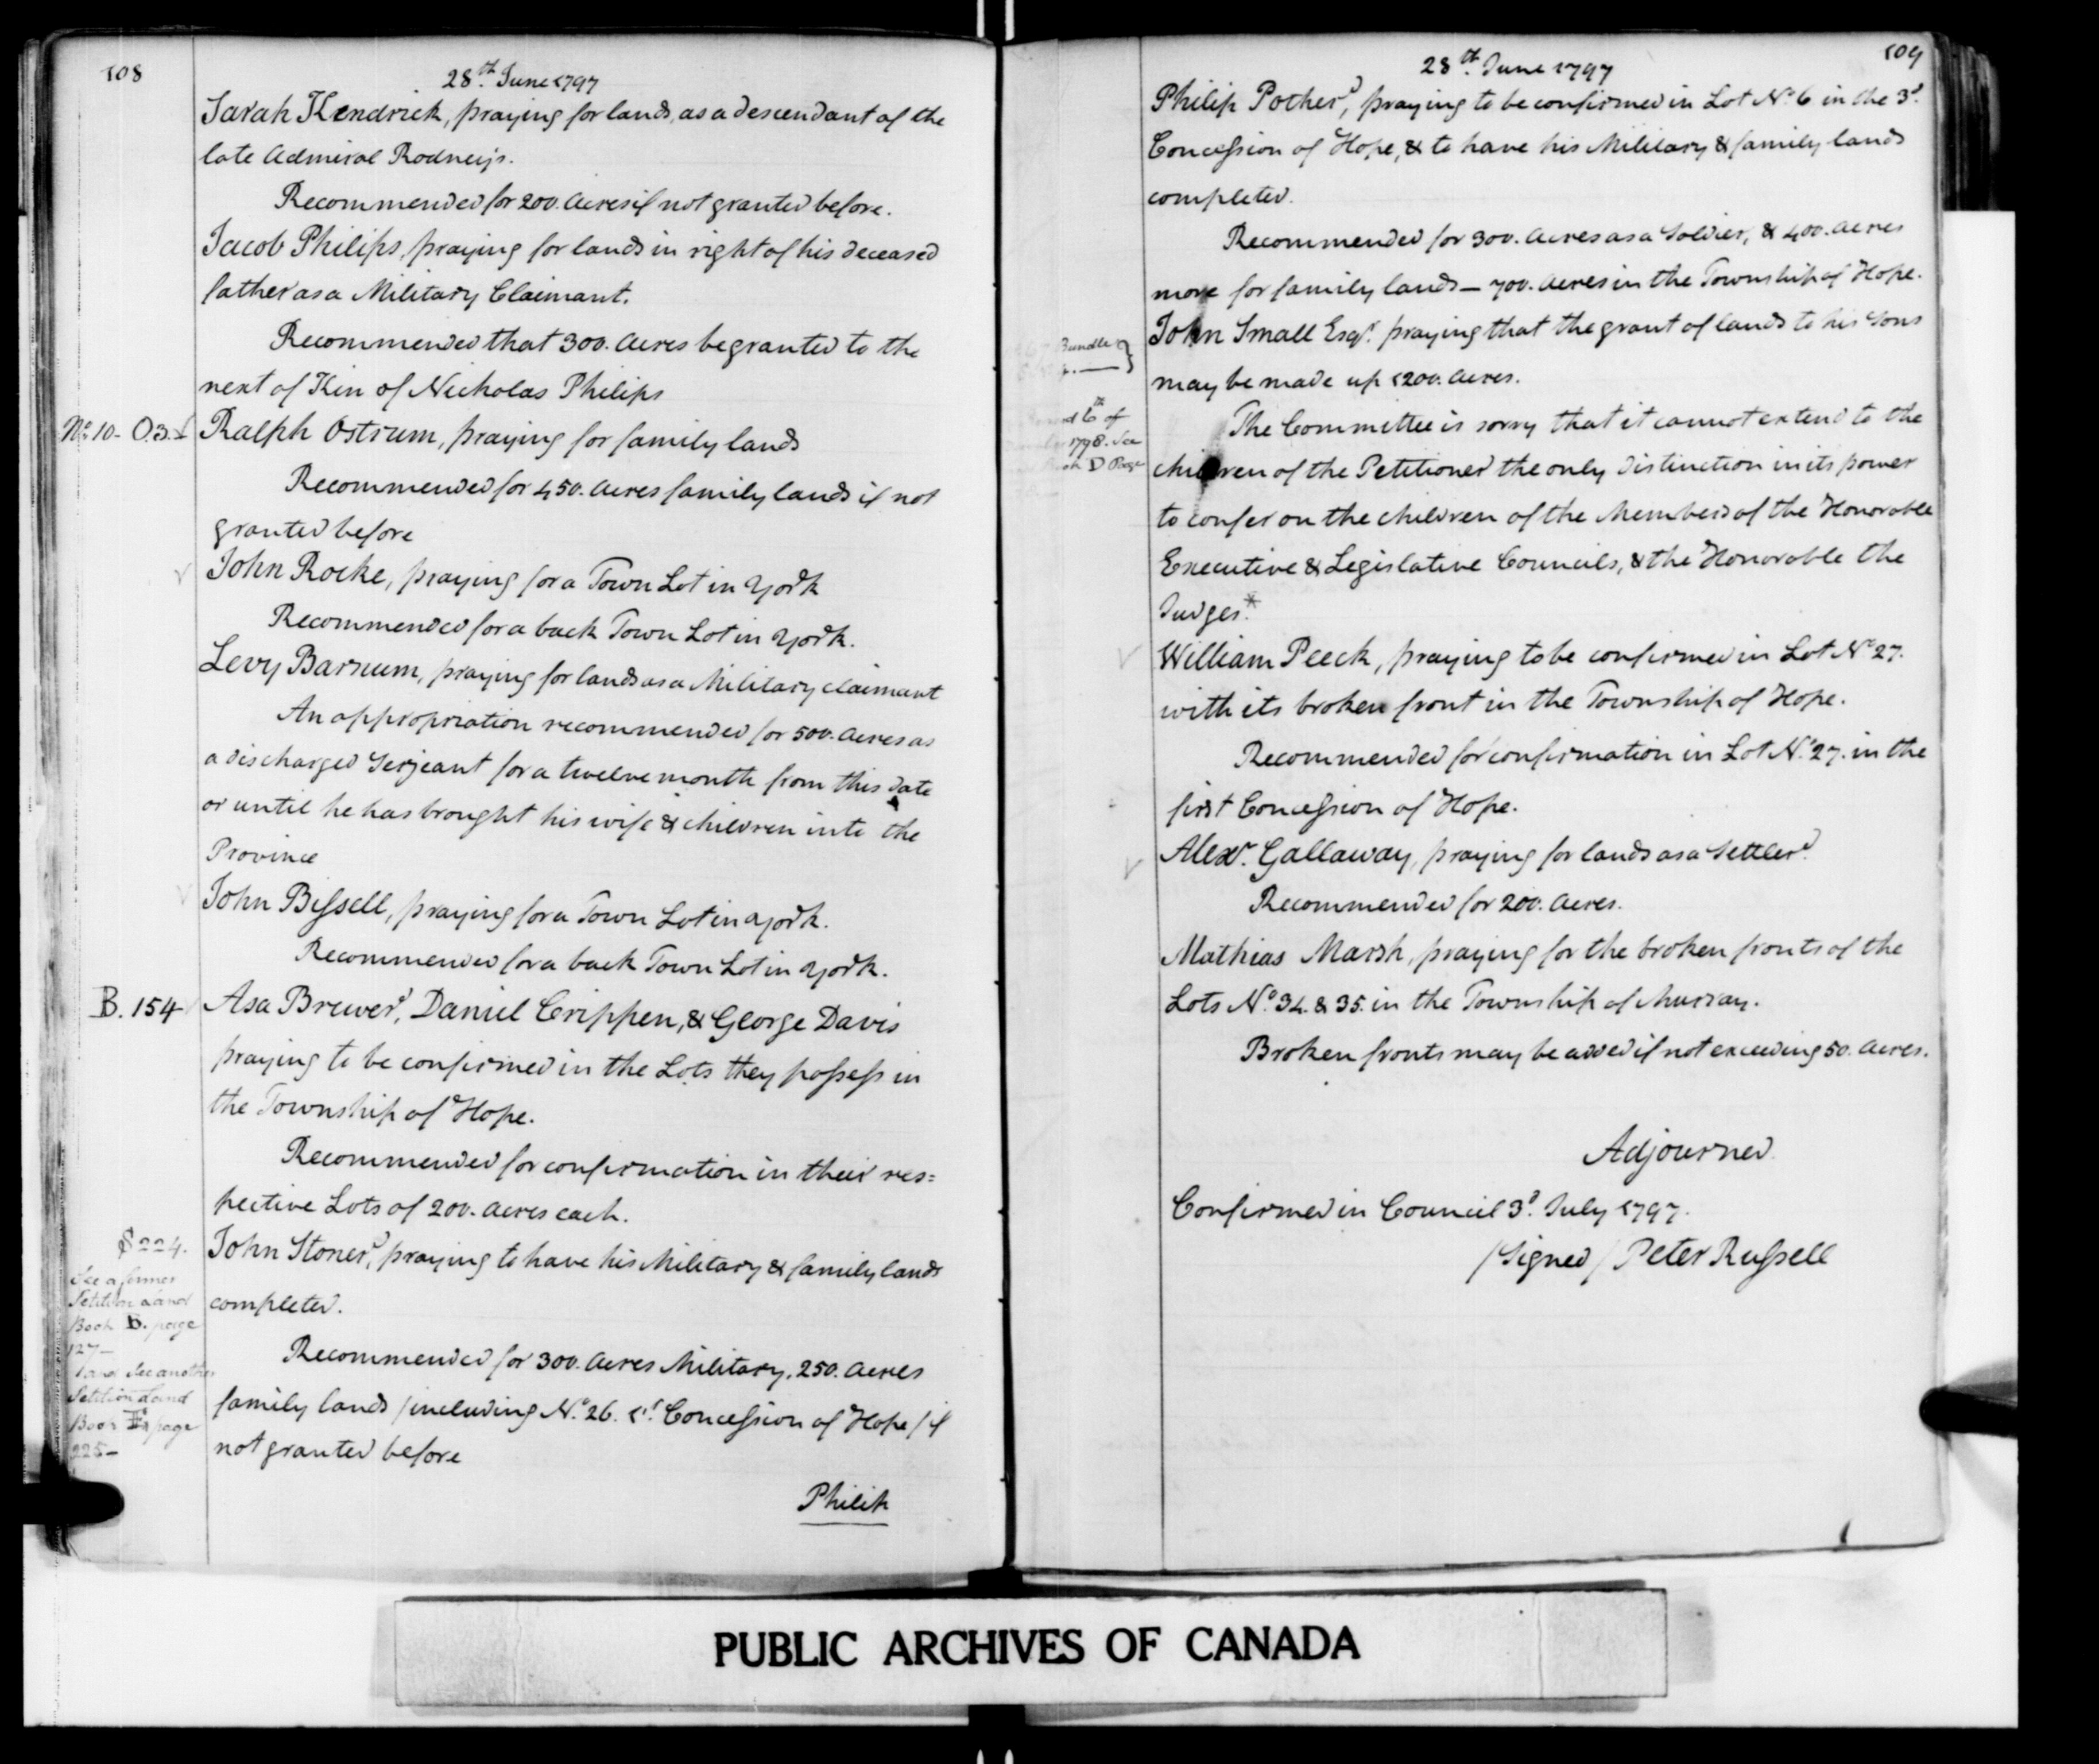 108
28th June 1797
Sarah Kendrick, praying for lands, as a descendant of the
late Admiral Rodneys.
Recommended for 200. Acres if not granted before.
Jacob Philips, praying for lands in right of his deceased
father as a Military Claimant.
Recommended that 300. Acres be granted to the
next of Kin of Nicholas Philips
No. 10 - O.3.
Ralph Ostrum, praying for family lands
Recommended for 450. Acres family lands if not
granted before
John Rocke, praying for a Town Lot in York
Recommended for a back Town Lot in York.
Levy Barnum, praying for lands as a Military claimant
An appropriation recommended for 500. Acres as
a discharged Serjeant for a twelve month from this date
or until he has brought his wife & children into the
Province
John Bissell, praying for a Town Lot in York.
Recommended for a back Town Lot in York.
B. 154
Asa Brewer, Daniel Crippen, & George Davis
praying to be confirmed in the Lots they possess in
the Township of Hope.
Recommended for confirmation in their res=
pective Lots of 200. Acres each.
S 224.
See a former
Petition Land
Book B. page
127-
See another
Petition Land
Book page
225-
John Stoner, praying to have his Military & family lands
completed.
Recommended for 300. Acres Military, 250. Acres
family lands (including No. 26. 1st Concession of Hope) if
not granted before
Philip
109
28th June 1797
Philip Pother, praying to be confirmed in Lot No. 6 in the 3d
Concession of Hope, & to have his Military & family lands
completed.
Recommended for 300. Acres as a Soldier, & 400. Acres
more for family lands — 700. Acres in the Township of Hope.
Bundle
John Small Esqr. praying that the grant of lands to his Sons
may be made up 1200. Acres.
6th of
1798. See
D Page
The Committee is sorry that it cannot extend to the
children of the Petitioner the only distinction in its power
to confer on the children of the Members of the Honorable
Executive & Legislative Councils, & the Honorable the
Judges.*
William Peeck, praying to be confirmed in Lot No. 27.
with its broken front in the Township of Hope.
Recommended for confirmation in Lot No. 27. in the
first Concession of Hope.
Alexr. Gallaway, praying for lands as a Settler.
Recommended for 200. Acres.
Mathias Marsh, praying for the broken fronts of the
Lots No. 34. & 35. in the Township of Murray.
Broken fronts may be added if not exceeding 50. Acres.
Adjourned
Confirmed in Council 3d. July 1797.
(Signed) Peter Russell
PUBLIC ARCHIVES OF CANADA